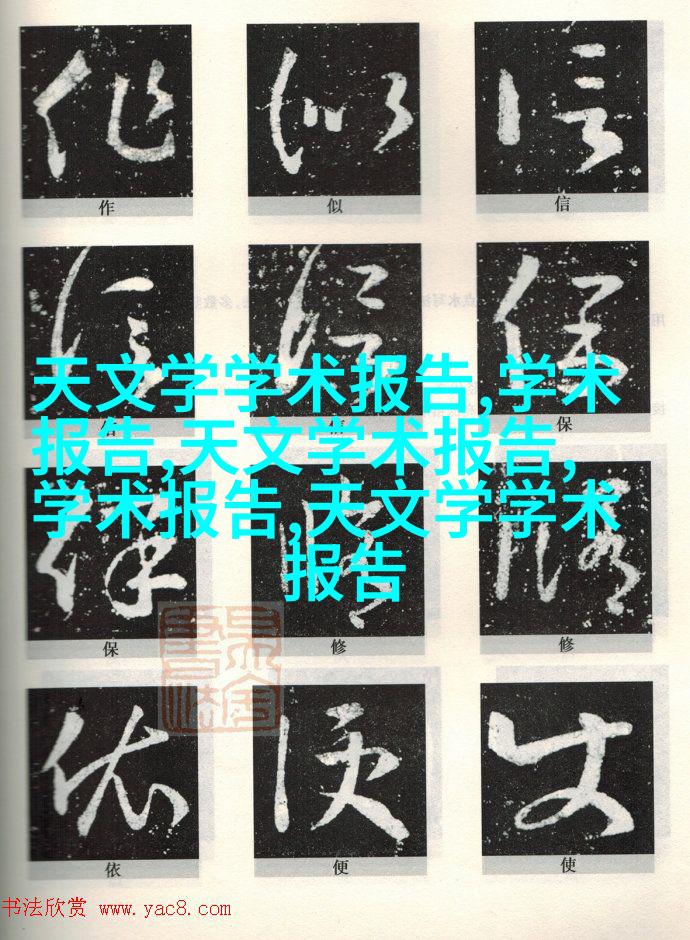 作 似 信
信 信 保
天文学学术报告,学术
报告,天文学术报告,
学术报告,天文学学术
报告
保 修 修
依 便 使
书法欣赏 www.yac8.com